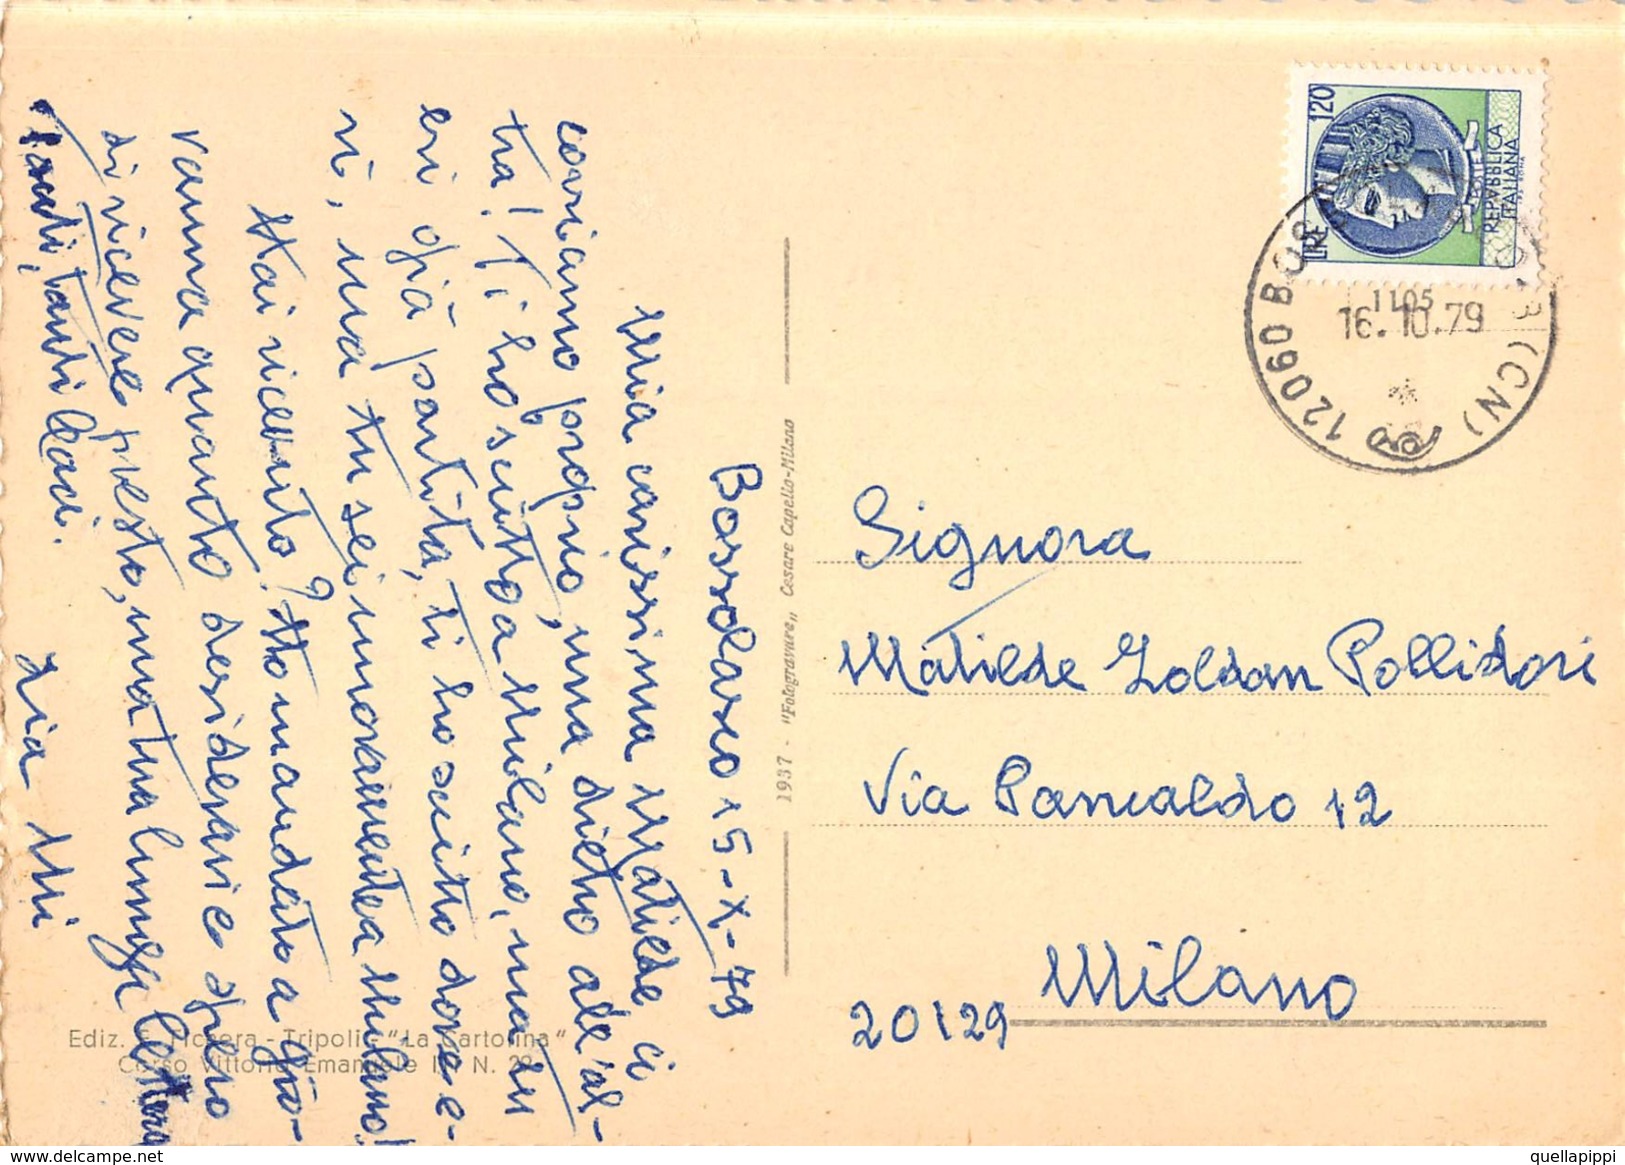 Bossolasco 15-X-79
Mia carissima Matilde ci
corriamo proprio, una dietro all'al-
tra! Ti ho scritto a Milano, ma tu
eri già partita, ti ho scritto dove e-
ri, ma tu sei nuovamente a Milano!
Hai ricevuto? Ho mandato a Gio-
vanna quanto desideravi e spero
di ricevere presto, ma tua lunga lettera
Tanti, tanti baci.
Zia Mi
1937 - "Fotogravure" Cesare Capello-Milano
Ediz. F. - Tripoli - "La Cartolina"
Corso Vittorio Emanuele III N. 22
LIRE 120
REPVBBLICA
ITALIANA
ROMA
12060 (CN)
1105
16.10.79
Signora
Matilde Zoldan Pollidori
Via Pancaldo 12
Milano
20129
quellapippi